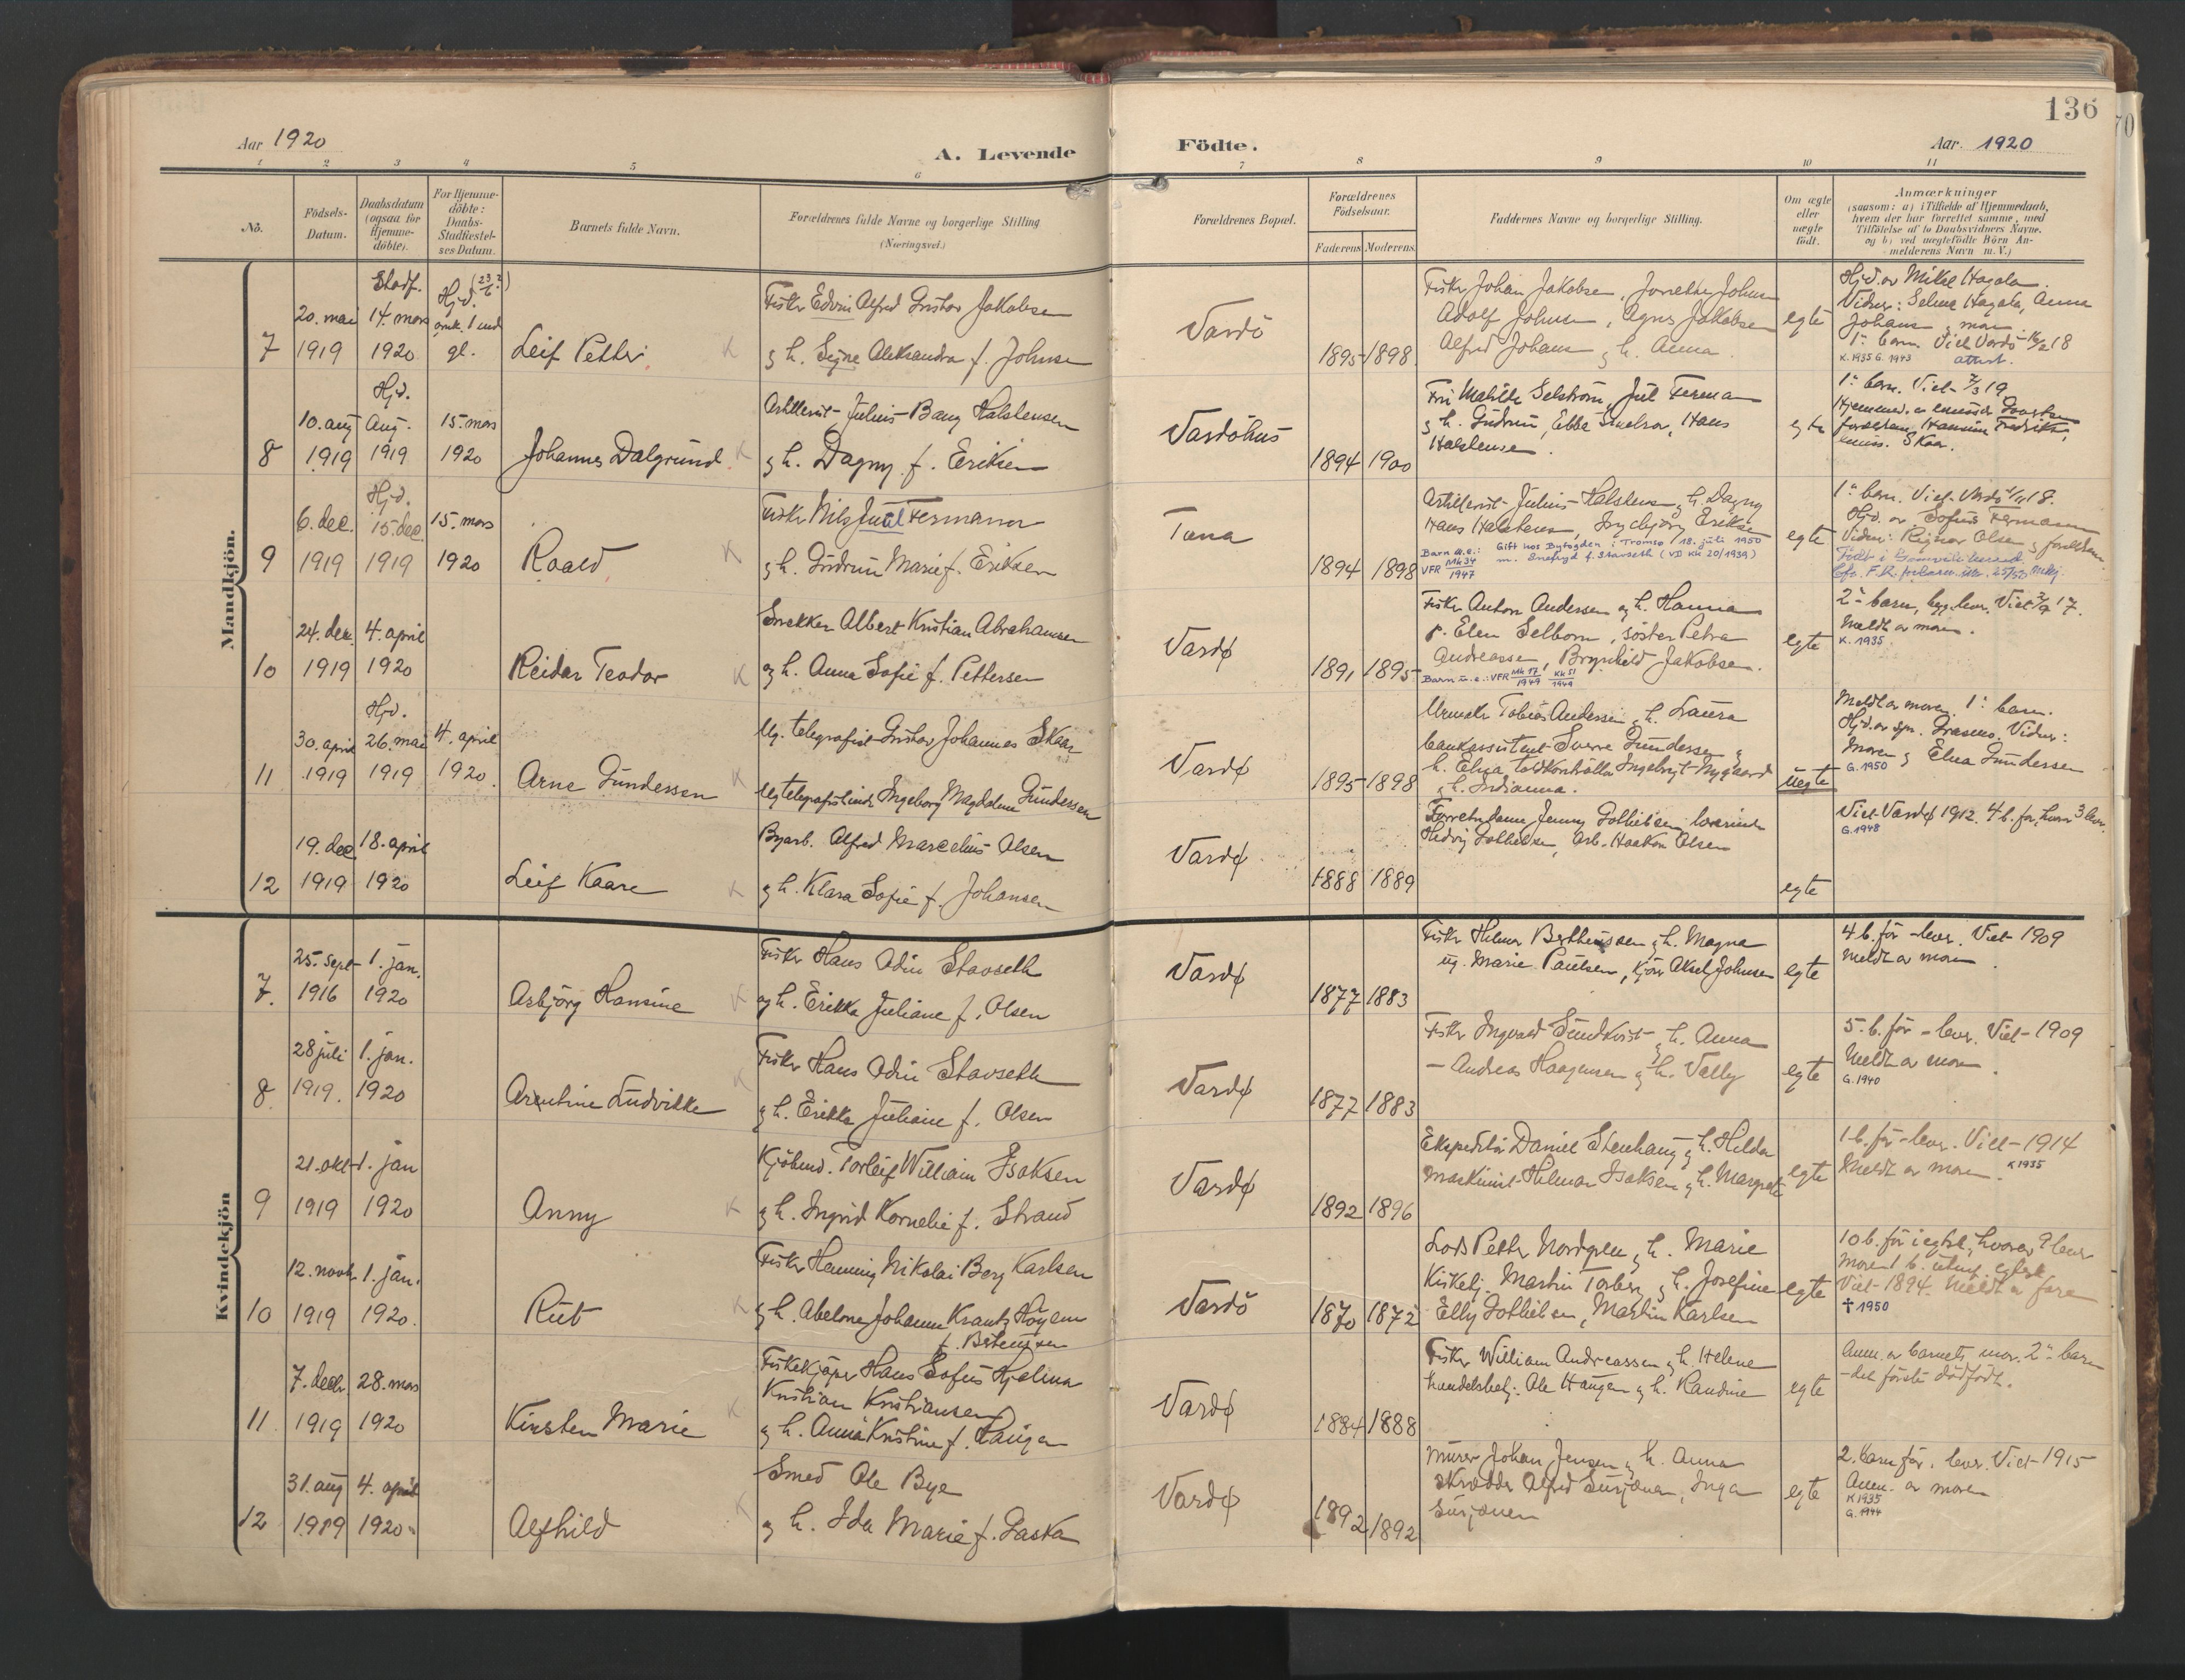 136
Aar 1920
A. Levende
Födte.
Aar. 1920
1 2 3 4 5 6 7 8 9 10 11
No.
Födsels-
Datum.
Daabsdatum
(ogsaa for
Hjemme-
döbte).
For Hjemme-
döbte:
Daabs-
Stadfæstel-
ses Datum.
Barnets fulde Navn.
Forældrenes fulde Navne og borgerlige Stilling
(Næringsvei.)
Forældrenes Bopæl.
Forældrenes
Födselsaar.
Faderens Moderens
Faddernes Navne og borgerlige Stilling.
Om ægte
eller
uægte
födt.
Anmærkninger
(saasom: a) i Tilfælde af Hjemmedaab,
hvem der har forrettet samme, med
Tilföielse af to Daabsvidners Navne,
og b) ved uægtefödte Börn An-
melderens Navn m. V.)
Mandkjön.
7
20. mai
1919
Stadf.
14. mars
1920
Hjd. (23/6?)
omk. 1 mnd
gl.
Leif Petter
K
Fisker Edvin Alfred Gustav Jakobsen
og h. Signe Aleksandra f. Johnsen
Vardö
1895 1898
Fisker Johan Jakobsen, Johnsen
Adolf Johnsen, Agnes Jakobsen
Alfred Johans og h. Anna
egte
Hjd. av Mikal Hagala.
Vidner: Selma Hagala, Anna
Johans og moren
1e barn. Viet Vardö 18
K. 1935 G. 1943 attest.
8
10. aug
1919
Hjd.
Aug.
1919
15. mars
1920
Johannes Dalgrund
K
Artillerist Julius Bang Halstensen
og h. Dagny f. Eriksen
Vardöhus
1894 1900
Fru Matilde Selström, Jul Fermann
og h. Gudrun, Ebba, Hans
Halstensen.
egte
1e barn. Viet 7/3 19
Hjemmed. av emissær
foreldrene, Hansine Fredrikke,
emiss. Skar.
9
6. dec.
1919
Hjd.
15. dec.
1919
15. mars
1920
Roald
K
Fisker Nils Juul Fermann
og h. Gudrun Marie f. Eriksen
Tana
1894 1898
Artillerist Julius Halstensen og h. Dagny
Hans Halstensen, Ingebjörg Eriksen
Barn u.e.: Gift hos Byfogden i Tromsø 18. juli 1950
VFR Mk 34/1947 m. f. Stavseth (VD KK 20/1939)
egte
1e barn. Viet. Vardö 18.
Hjd. av Sofus Fermann
Vidner: Ragnar Olsen og foreldrene.
Födt i
10
24. dec.
1919
4. april
1920
Reidar Teodor
K
Snekker Albert Kristian Abrahamsen
og h. Anna Sofie f. Pettersen
Vardø
1891 1895
Fisker Anton Andersen og h. Hanna
p. Elen Selborn, söster Petra
Andreassen, Brynhild Jakobsen.
Barn u.e.: VFR Mk 17/1949 KK 51/1949
egte
2e barn, begge lever. Viet 2/9 17.
Meldt av moren.
K. 1935
11
30. april
1919
Hjd.
26. mai
1919
4. april
1920
Arne Gundersen
K
Ug. telegrafist Gustav Johannes Skaar
Ug telegrafistinde Ingeborg Magdalene Gundersen
Vardø
1895 1898
Urmaker Tobias Andersen og h. Laura
bankassistent Sverre Gundersen og
h. Elna toldkontrollör Ingebrigt Nygaard
og h. Indianna.
uegte
Meldt av moren. 1e barn.
Hjd. av spr. Grasmo. Vidner:
Moren og Elna Gundersen
G. 1950
12
19. dec.
1919
18. april
1920
Leif Kaare
K
Byarb. Alfred Marcelius Olsen
og h. Klara Sofie f. Johansen
Vardø
1888 1889
Forretn.dame Jenny Gotliebsen, lærerinde
Hedvig Gotliebsen, Arb. Haakon Olsen
egte
Viet Vardø 1912. 4 b. før, hvorav 3 lever.
G. 1948
Kvindekjön
7.
25. sept
1916
1. jan.
1920
Asbjörg Hansine
K
Fisker Hans Odin Stavseth
og h. Erikka Juliane f. Olsen
Vardø
1877 1883
Fisker Helmer Bertheussen og h. Magna
ug. Marie Paulsen, kjörer Aksel Johnsen
egte
4 b. för – lever. Viet 1909
Meldt av moren.
8
28 juli
1919.
1. jan.
1920
Arentine Ludvikke
K
Fisker Hans Odin Stavseth
og h. Erikka Juliane f. Olsen
Vardø
1877 1883
Fisker Ingvald Sundkvist og h. Anna
– Andreas Haagensen og h. Vally
egte
5. b. för – lever. Viet 1909
Meldt av moren.
G. 1940
9
21. okt
1919
1. jan
1920
Anny
K
Kjöbmd. Torleif William Isaksen
og h. Ingrid Kornelie f. Strand
Vardø
1892 1896
Ekspeditör Daniel Stenhaug og h. Hilda
Maskinist Helmar Isaksen og h. Margrete
egte
1 b. för – lever. Viet 1914
Meldt av moren. K 1935
10
12. novb.
1919
1. jan.
1920.
Rut
K
Fisker Henning Nikolai Berg Karlsen
og h. Abelone Johanne Krantz Høyem
f. Berteussen
Vardö
1870 1872
Lods Petter Nordgren og h. Marie
Kirketj. Martin Torberg og h. Josefine
Elly Gotliebsen, Martin Karlsen
egte
10 b. för i egtsk., hvorav 9 lever
Moren 1 b. utenf. egtesk
Viet 1894. Meldt av fare
✝ 1950
11
7. decb.
1919
28. mars
1920
Kirsten Marie
K
Fiskekjöper Hans Sofus Hjalmar
Kristian Kristiansen
og h. Anna Kristine f. Hauger
Vardø
1884 1888
Fisker William Andreassen og h. Helene
handelsbetj. Ole Haugen og h. Randine
egte
Anm. av barnets mor. 2e barn
– det förste dödfödt.
12
31. aug
1919
4. april
1920
Alfhild
K
Smed Ole Bye
og h. Ida Marie f. Laska
Vardø
1892 1892
Murer Johan Jensen og h. Anna
Skrædder Alfred Surjonen, Inga
Surjonen
egte
2. barn för, lever. Viet 1915
Anm. av moren
K 1935
G. 1944